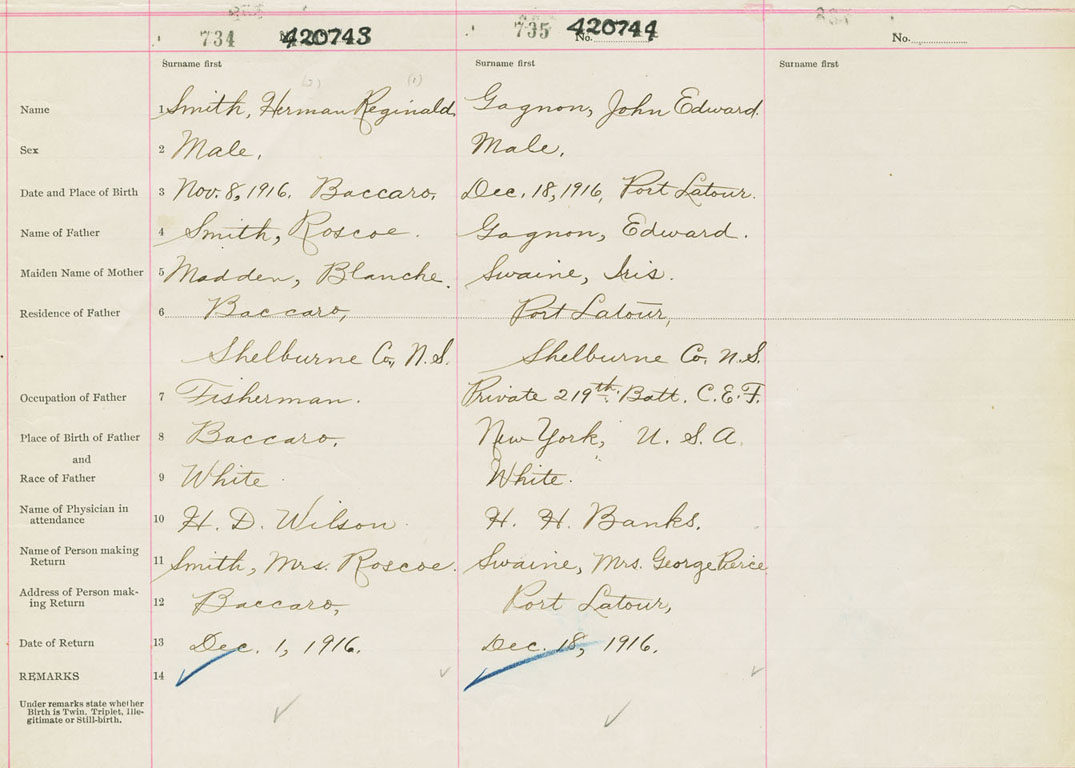 734 420743 735 No. 420744 No.
Surname first Surname first Surname first
(2) (1)
Name 1 Smith, Herman Reginald. Gagnon, John Edward.
Sex 2 Male. Male.
Date and Place of Birth 3 Nov. 8, 1916. Baccaro. Dec. 18, 1916, Port Latour.
Name of Father 4 Smith, Roscoe. Gagnon, Edward.
Maiden Name of Mother 5 Madden, Blanche. Swaine, Iris.
Residence of Father 6 Baccaro, Port Latour,
Shelburne Co., N.S. Shelburne Co., N.S.
Occupation of Father 7 Fisherman. Private 219th. Batt. C.E.F.
Place of Birth of Father 8 Baccaro. New York, U. S. A.
and
Race of Father 9 White White.
Name of Physician in
attendance 10 H. D. Wilson. H. H. Banks.
Name of Person making
Return 11 Smith, Mrs. Roscoe. Swaine, Mrs. George Pierce
Address of Person mak-
ing Return 12 Baccaro, Port Latour,
Date of Return 13 Dec. 1, 1916. Dec. 18, 1916.
REMARKS 14
Under remarks state whether
Birth is Twin, Triplet, Ille-
gitimate or Still-birth.